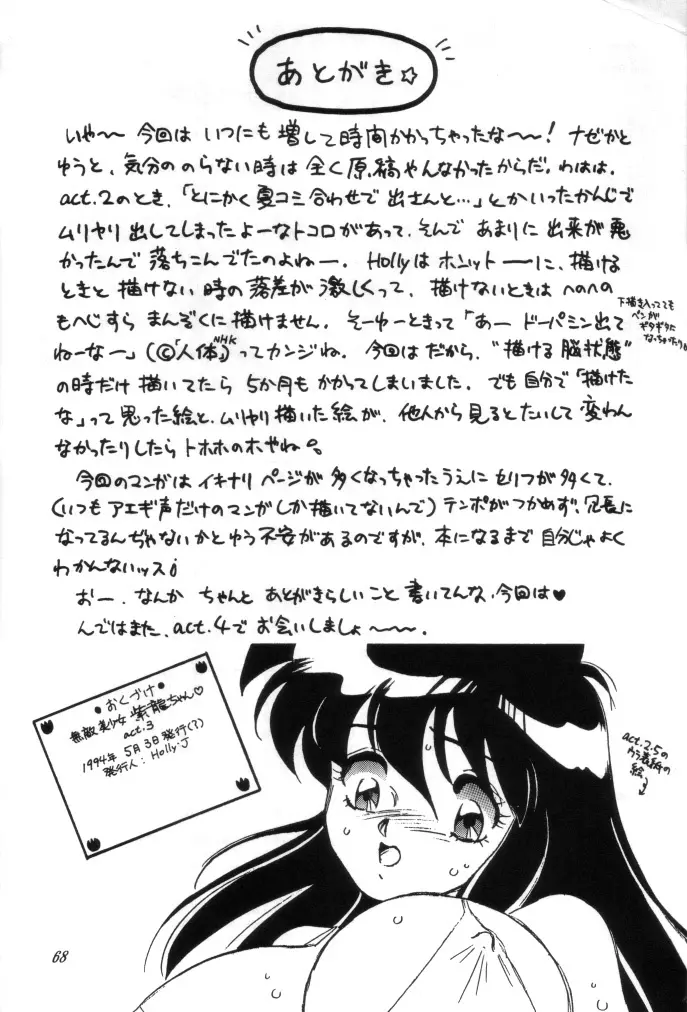 あとがき☆
いや〜〜 今回は いつにも 増して 時間かかっちゃったな〜〜! ナゼかと
ゆうと、気分の のらない時は 全く原稿やんなかったからだ。わはは。
act.2のとき、「とにかく夏コミ合わせで 出さんと…」とかいったかんじで
ムリヤリ 出してしまったよーなトコロがあって、そんで あまりに 出来が悪
かったんで 落ちこんでたのよねー。Hollyは ホニットーーに、描ける
ときと 描けない 時の落差が 激しくって、描けないときは へのへの
もへじすら まんぞくに描けません。そーゆーときって「あー ドーパミン出て
ねーなー」(©「人体」NHK)ってカンジね。今回は だから、"描ける 脳状態"
の時だけ 描いてたら 5か月も かかってしまいました。でも自分で「描けた
な」って思った絵と、ムリヤリ描いた絵が、他人から見るとたいして 変わん
なかったりしたら トホホのホやね。
下描き入ってても
ペンが
ギタギタに
なっちゃったり
今回のマンガは イキナリ ページが 多くなっちゃったうえに セリフが多くて、
(いつも アエギ声だけのマンガしか描いてないんで)テンポがつかめず、冗長に
なってるんぢゃないかとゆう不安があるのですが、本になるまで 自分じゃよく
わかんないッス
おー、なんか ちゃんと あとがきらしいこと 書いてんな、今回は♥
んではまた、act.4で お会いしましょ〜〜〜。
●おくづけ●
無敵美少女 紫龍ちゃん♡
act.3
1994年 5月3日発行(?)
発行人:Holly.J
act.2.5の
ウラ表紙の
絵
68